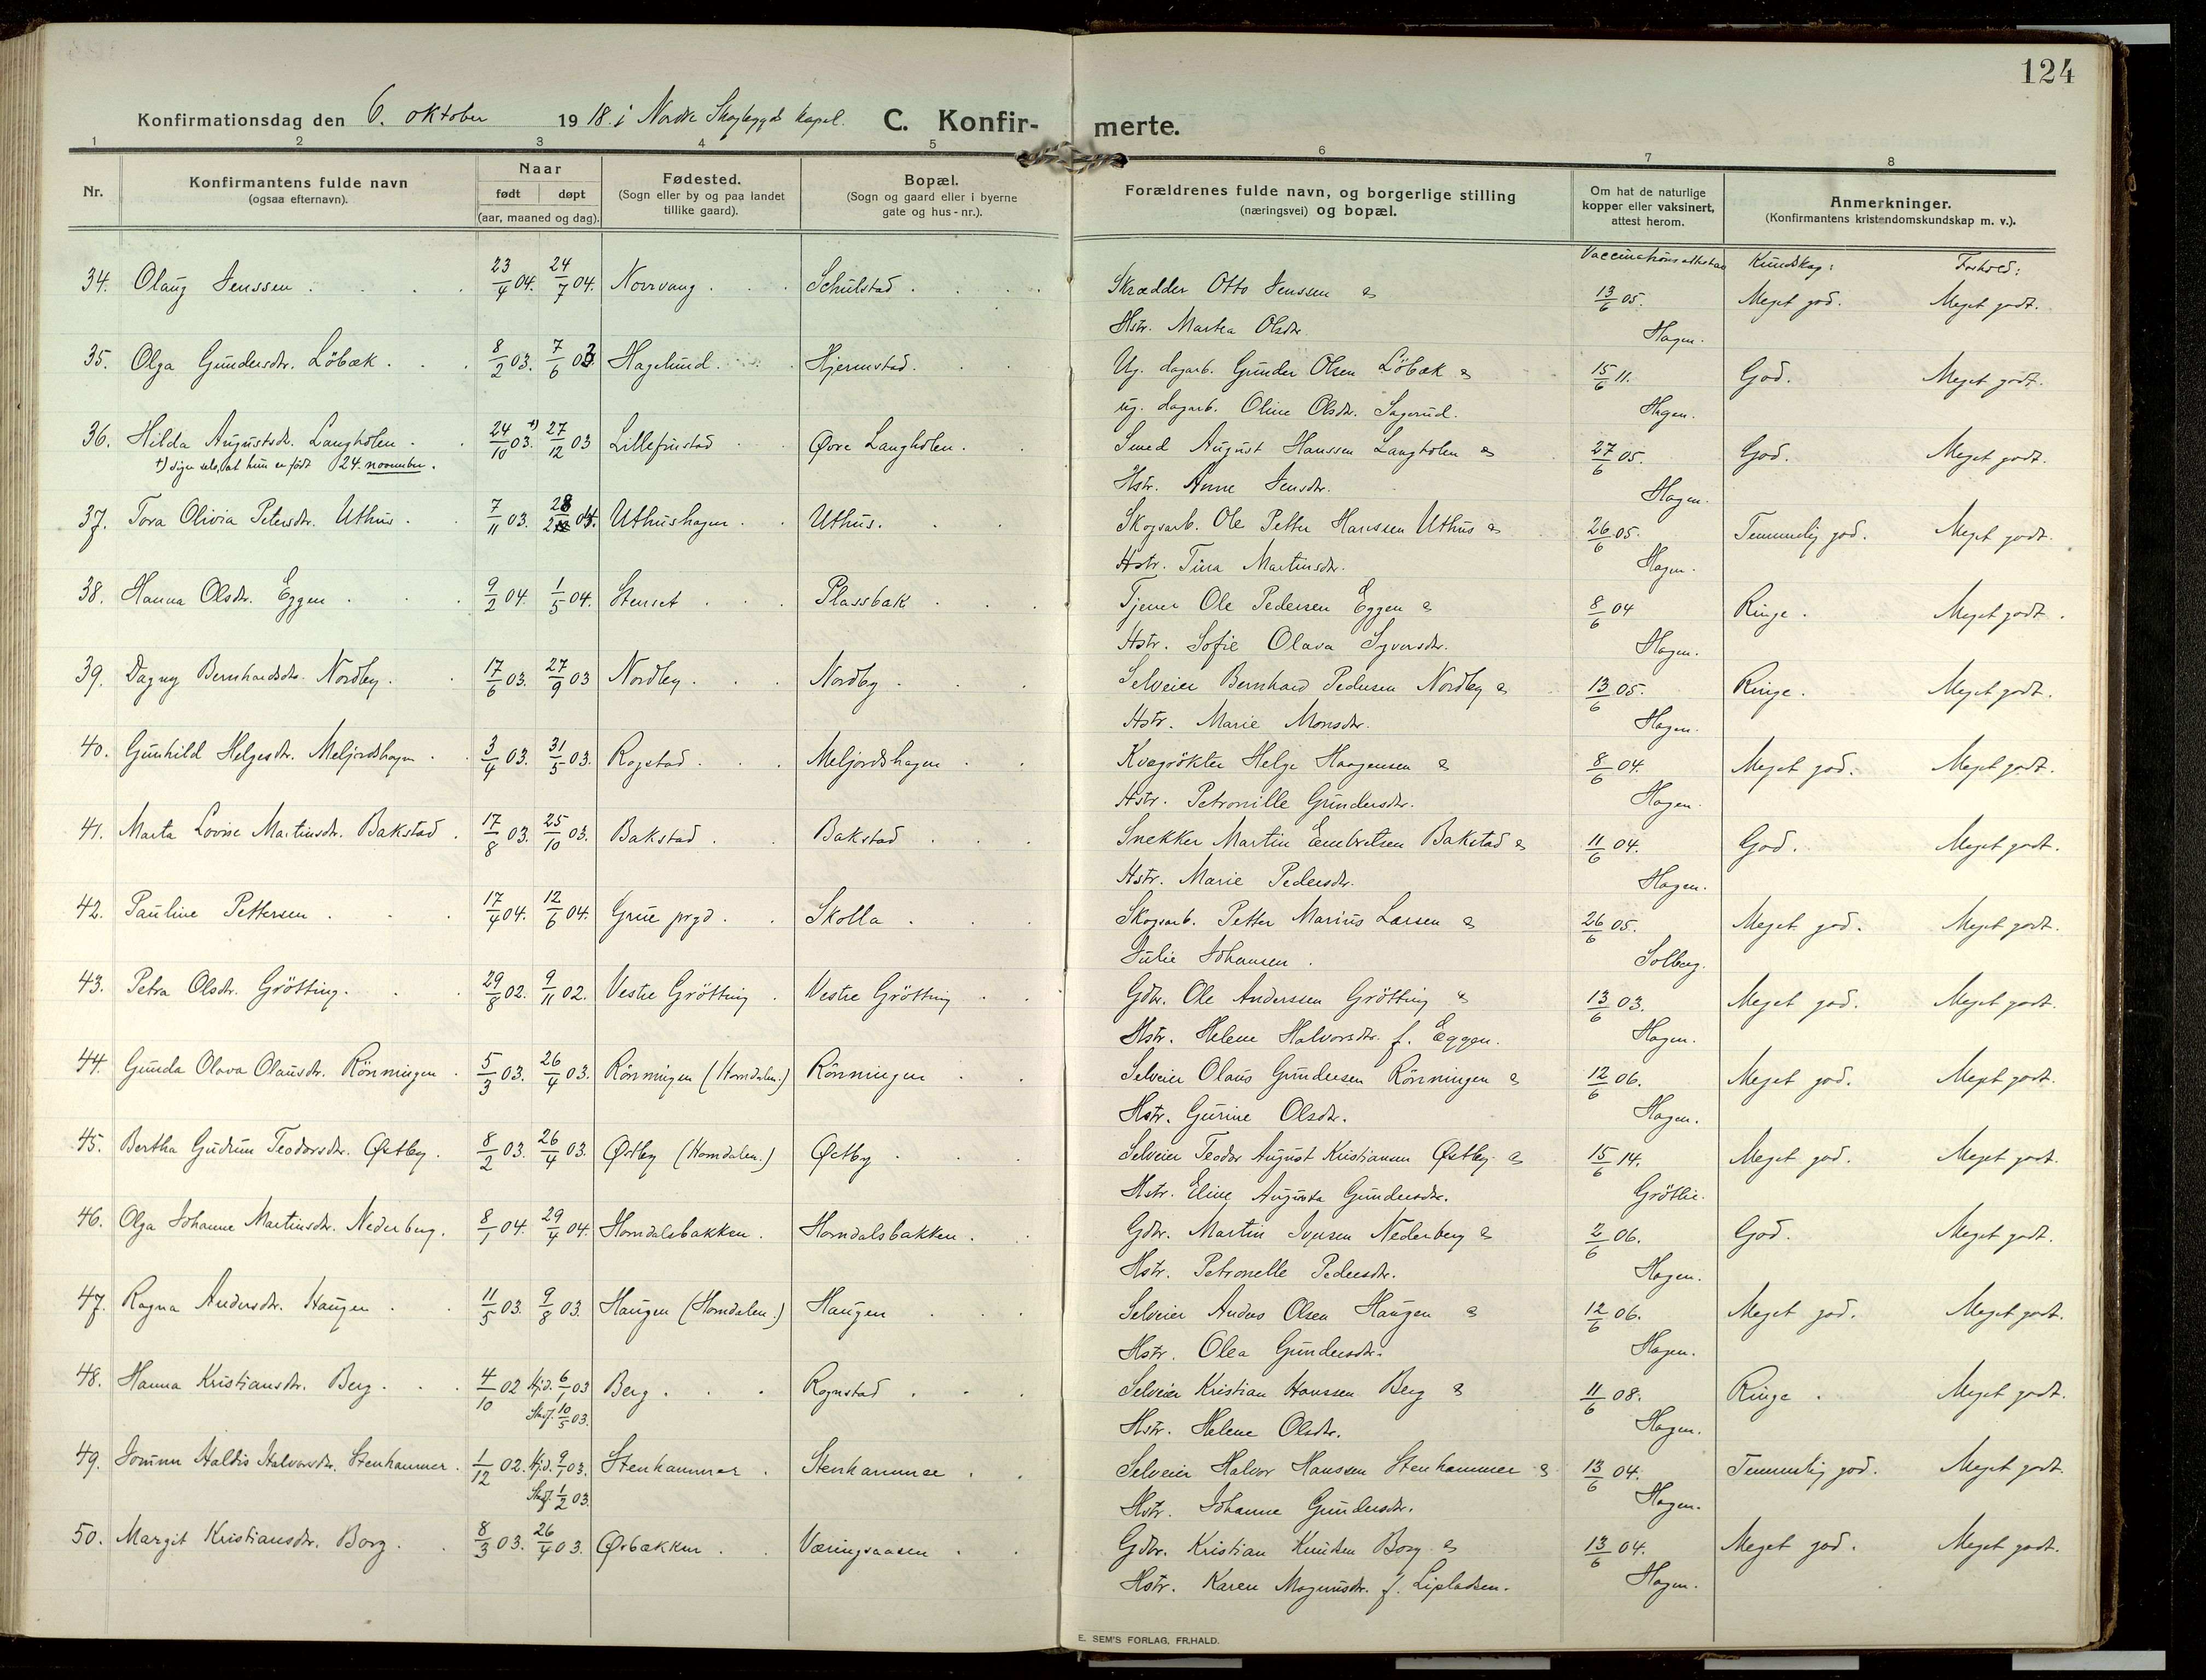 124
Konfirmationsdag den 6. oktober 1918. i Nordre Skogbygds kapel. C. Konfir- merte.
1 2 3 4 5 6 7 8
Nr. Konfirmantens fulde navn (ogsaa efternavn). Naar født døpt (aar, maaned og dag). Fødested. (Sogn eller by og paa landet tillike gaard). Bopæl. (Sogn og gaard eller i byerne gate og hus-nr.). Forældrenes fulde navn, og borgerlige stilling (næringsvei) og bopæl. Om hat de naturlige kopper eller vaksinert, attest herom. Anmerkninger. (Konfirmantens kristendomskundskap m. v.).
Vaccinationsattester Kundskap: Forhold:
34. Olaug Jenssen 23/4 04. 24/7 04. Norvang Schulstad Skrædder Otto Jenssen & 13/6 05. Meget god. Meget godt.
Hstr. Martea Olsdtr. Hagen.
35. Olga Gundersdtr. Löbæk 8/2 03. 7/6 03 Hagelund Hjermstad. Ug. dagarb. Gunder Olsen Löbæk & 15/6 11. God. Meget godt.
ug. dagarb. Oline Olsdtr. Sagerud. Hagen.
36. Hilda Augustsdtr. Langholen 24/10 03. +) 27/12 03 Lillefrustad Øvre Langholen Smed August Hanssen Langholen & 27/6 05. God. Meget godt.
+) siger selv, at hun er født 24. november. Hstr. Anne Jensdtr. Hagen.
37. Tora Olivia Petersdtr. Uthus 7/11 03. 28/2 04. Uthushagen Uthus. Skogsarb. Ole Petter Hanssen Uthus & 26/6 05. Temmelig god. Meget godt.
Hstr. Tina Martinsdtr. Hagen.
38. Hanna Olsdtr. Eggen 9/2 04. 1/5 04. Stenset Plassbak Tjener Ole Pedersen Eggen & 8/6 04 Ringe. Meget godt.
Hstr. Sofie Olava Syversdtr. Hagen.
39. Dagny Bernhardsdtr. Nordby. 17/6 03. 27/9 03 Nordby. Nordby Selveier Bernhard Pedersen Nordby & 13/6 05. Ringe. Meget godt.
Hstr. Marie Monsdtr. Hagen.
40. Gunhild Helgesdtr. Meljordshagen 3/4 03. 31/5 03. Rogstad Meljordshagen Kvægrökter Helge Haagensen & 8/6 04. Meget god. Meget godt.
Hstr. Petronille Gundersdtr. Hagen.
41. Marta Lovise Martinsdtr. Bakstad 17/8 03. 25/10 03. Bakstad Bakstad Snekker Martin Embretsen Bakstad & 11/6 04. God. Meget godt.
Hstr. Marie Pedersdtr. Hagen.
42. Pauline Pettersen 17/4 04. 12/6 04. Grue prgd. Skolla Skogsarb. Petter Marius Larsen & 26/6 05. Meget god. Meget godt.
Julie Johansen. Solberg.
43. Petra Olsdtr. Grötting. 29/8 02. 9/11 02. Vestre Grötting Vestre Grötting Gdbr. Ole Anderssen Grötting & 13/6 03. Meget god. Meget godt.
Hstr. Helene Halvorsdtr. f. Eggen. Hagen.
44. Gunda Olava Olausdtr. Rönningen 5/3 03. 26/4 03. Rönningen (Horndalen.) Rönningen Selveier Olaus Gundersen Rönningen & 12/6 06. Meget god. Meget godt.
Hstr. Gurine Olsdtr. Hagen.
45. Bertha Gudrun Teodorsdtr. Østby. 8/2 03. 26/4 03. Østby (Horndalen.) Østby Selveier Teodor August Kristiansen Østby & 15/6 14. Meget god. Meget godt.
Hstr. Eline Augusta Gundersdtr. Gröttie.
46. Olga Johanne Martinsdtr. Nederberg. 8/1 04. 29/4 04. Horndalsbakken. Horndalsbakken. Gdbr. Martin Iversen Nederberg & 2/6 06. God. Meget godt.
Hstr. Petronelle Pedersdtr. Hagen.
47. Ragna Andersdtr. Haugen 11/5 03. 9/8 03. Haugen (Horndalen.) Haugen Selveier Anders Olsen Haugen & 12/6 06. Meget god. Meget godt.
Hstr. Olea Gundersdtr. Hagen.
48. Hanna Kristiansdtr. Berg. 4/10 02 Hjd. 6/1 03 Berg. Rognstad Selveier Kristian Hanssen Berg & 11/6 08. Ringe. Meget godt.
Stadf. 10/5 03. Hstr. Helene Olsdtr. Hagen.
49. Jorunn Haldis Halvorsdtr. Stenhammer. 1/12 02. Hjd. 9/1 03. Stenhammer Stenhammer Selveier Halvor Hanssen Stenhammer & 13/6 04. Temmelig god. Meget godt.
Stadf. 1/2 03. Hstr. Johanne Gundersdtr. Hagen.
50. Margit Kristiansdtr. Borg. 8/3 03. 26/4 03. Ørbækken Væringsaasen Gdbr. Kristian Knutsen Borg & 13/6 04. Meget god. Meget godt.
Hstr. Karen Magnusdtr. f. Lipladsen. Hagen.
E. SEM'S FORLAG, FR.HALD.